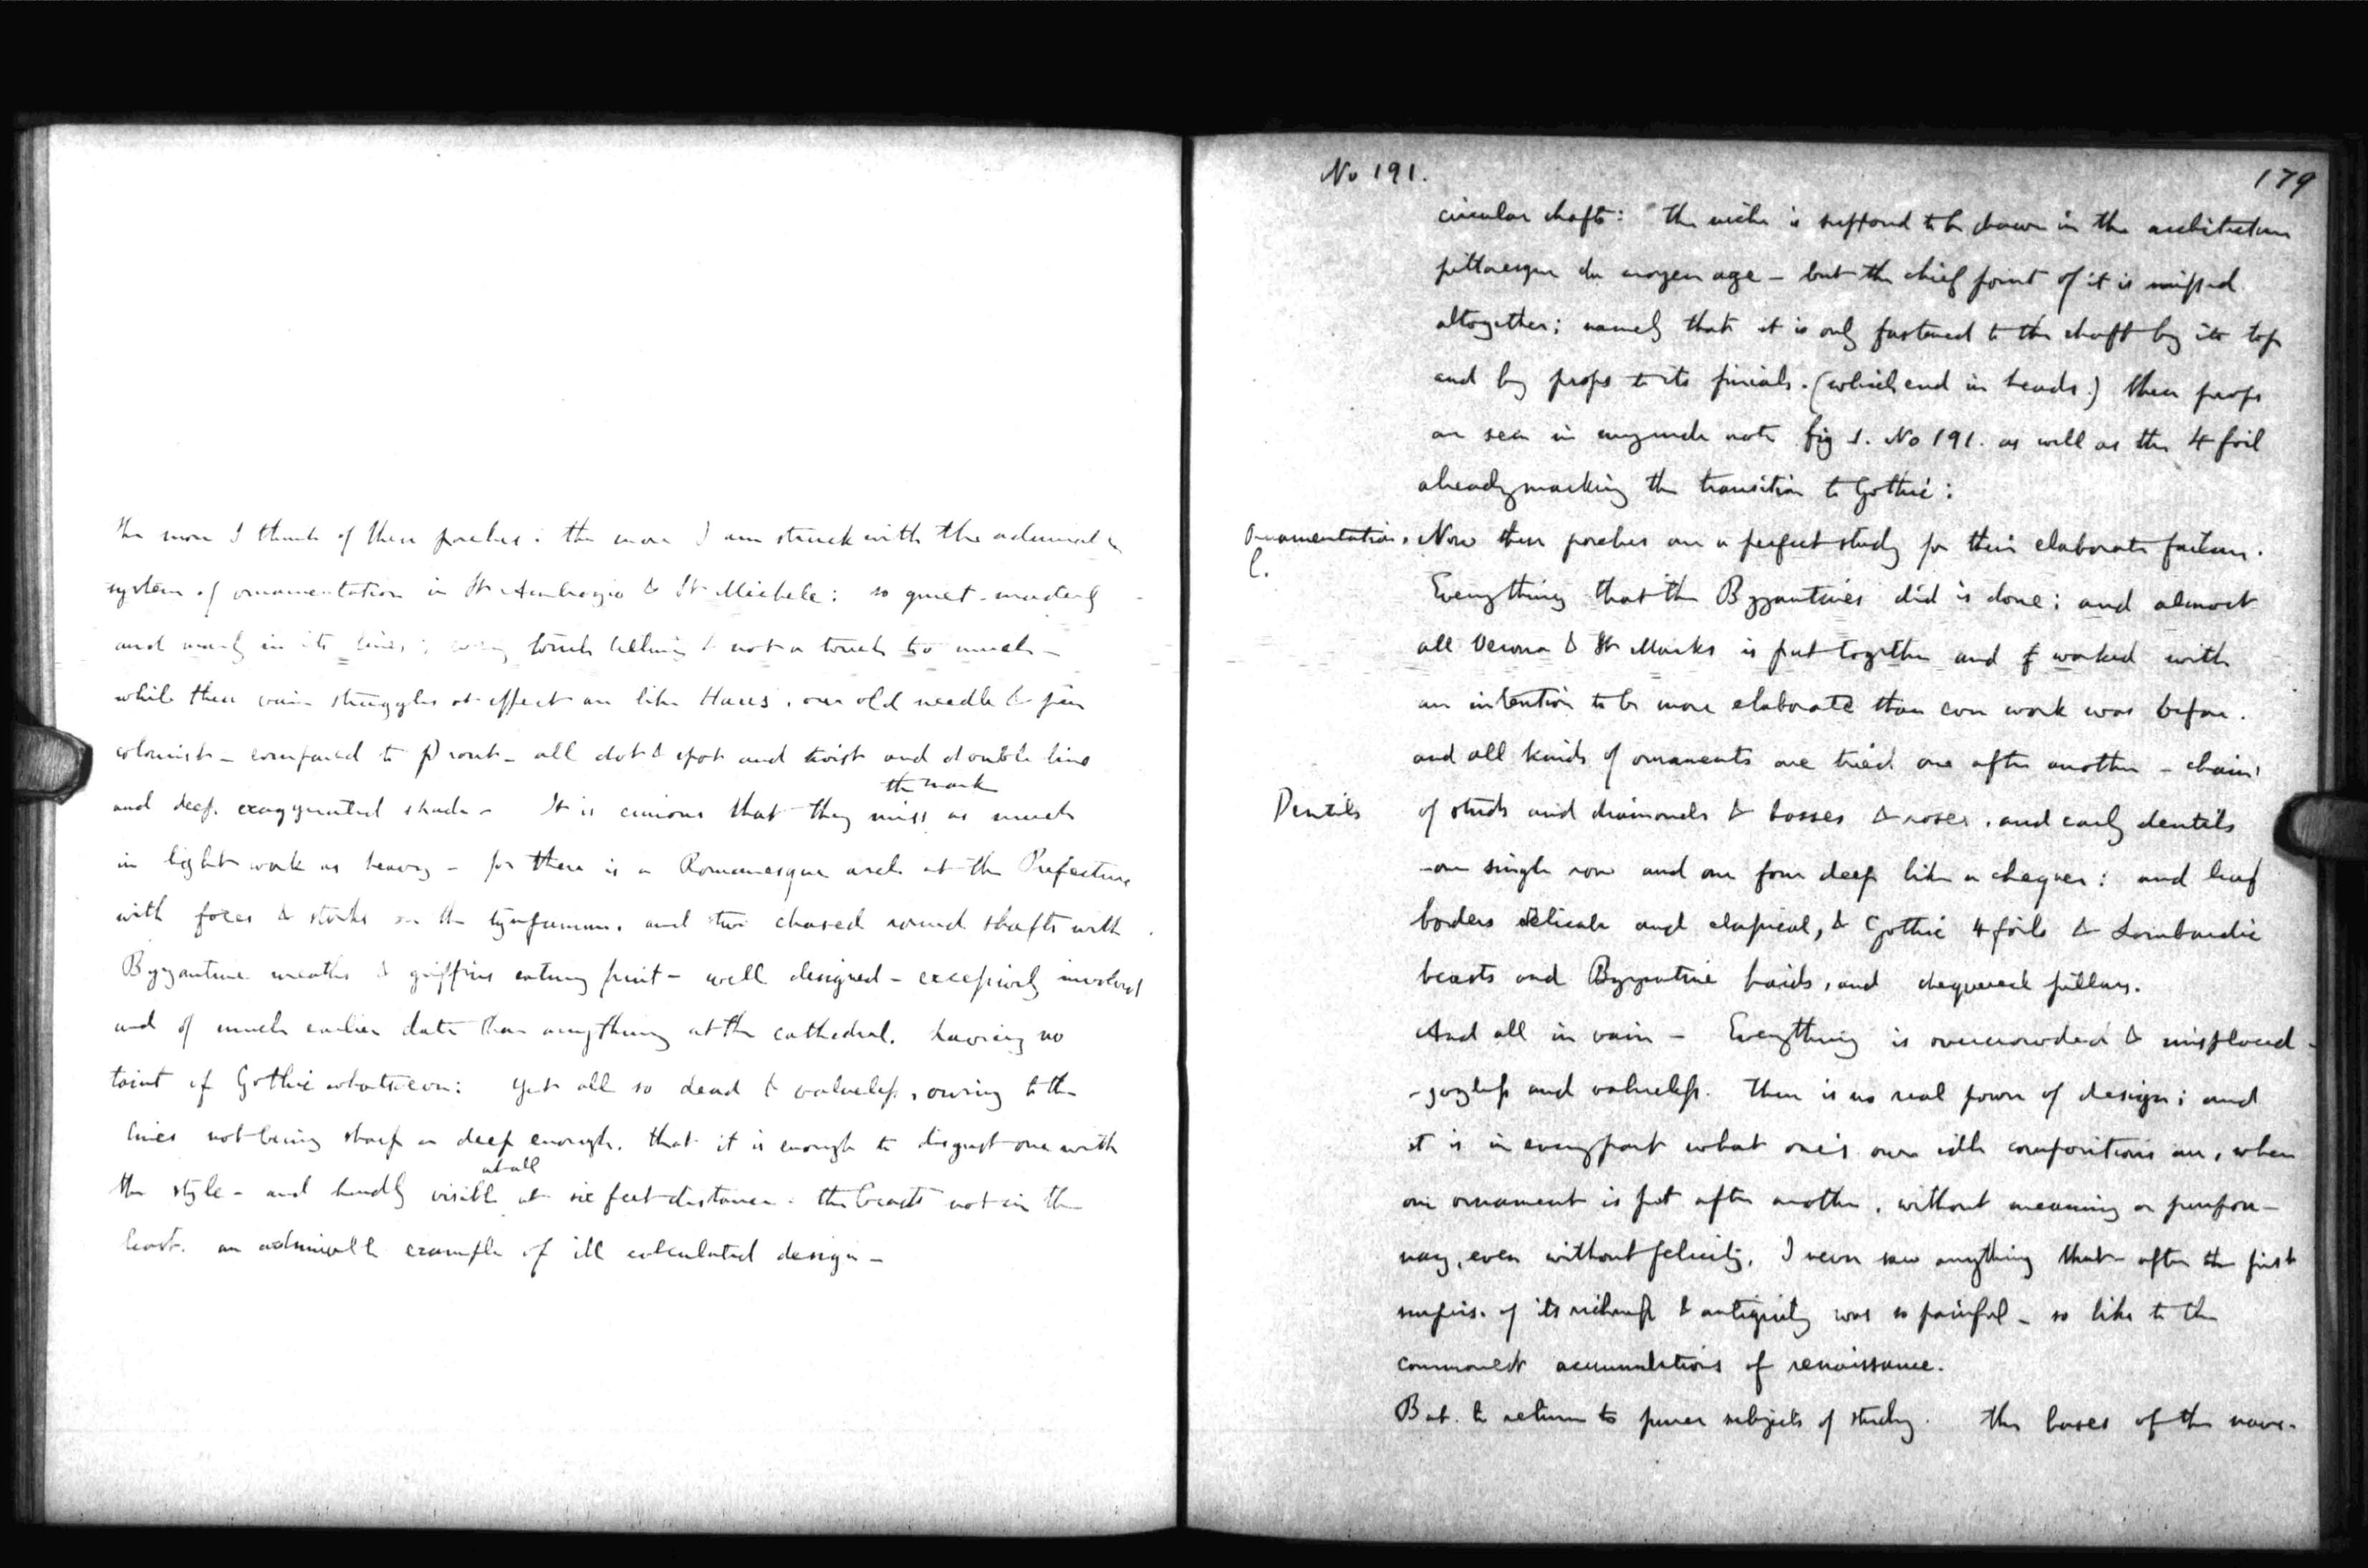 The more I think of these porches: the more I am struck with the admirable
system of ornamentation in St Ambrogio & St Michele: so quiet - masterly
and manly in its lines; every touch telling & not a touch too much -
while these vain struggles at effect are like Haus, our old needle & pen
colourist - compared to Prout - all dot & spot and twist and double line
and deep exaggerated shade - It is curious that they miss the mark as much
in light work as heavy - for there is a Romanesque arch at the Prefecture
with foxes & storks on the tympanum, and two chased round shafts with
Byzantine wreaths & griffins eating fruit - well designed - excessively involved
and of much earlier date than anything at the cathedral, having no
taint of Gothic whatsoever: yet all so dead & valueless, owing to the
lines not being sharp or deep enough, that it is enough to disgust one with
the style - and hardly visible at all at six feet distance - the beasts not in the
least. an admirable example of ill calculated design -
No 191.
179
circular shafts: the niche is supposed to be drawn in the architecture
pittoresque du moyen age - but the chief point of it is missed
altogether; namely that it is only fastened to the shaft by its top
and by props to its finials. (which end in heads.) these props
are seen in my rude note fig 1. No 191. as well as the 4 foil
already marking the transition to Gothic:
Ornamentation. Now these porches are a perfect study for their elaborate failure.
Everything that the Byzantines did is done; and almost
all Verona & St Marks is put together and worked with
an intention to be more elaborate than ever work was before.
and all kinds of ornaments are tried one after another - chains
Dentils of studs and diamonds & bosses & roses, and early dentils
- one single row and one four deep like a chequer: and leaf
borders delicate and classical, & Gothic 4 foils & Lombardic
beasts and Byzantine braids, and chequered pillars.
And all in vain - Everything is overcrowded & misplaced -
- joyless and valueless. There is no real power of design; and
it is in every part what one's own idle compositions are, when
one ornament is put after another, without meaning or purpose -
nay, even without felicity, I never saw anything that after the first
surprise of its richness & antiquity was so painful - so like to the
commonest accumulations of renaissance.
But to return to purer subjects of study. The bases of the nave.